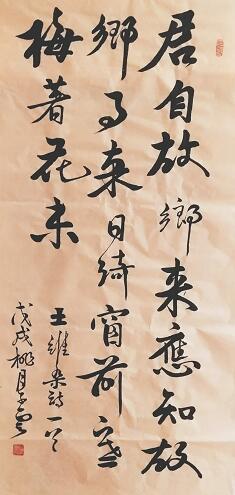 君自故鄉来應知故
鄉事来日綺窗前寒
梅著花未
王維杂詩一首
戊戌桃月